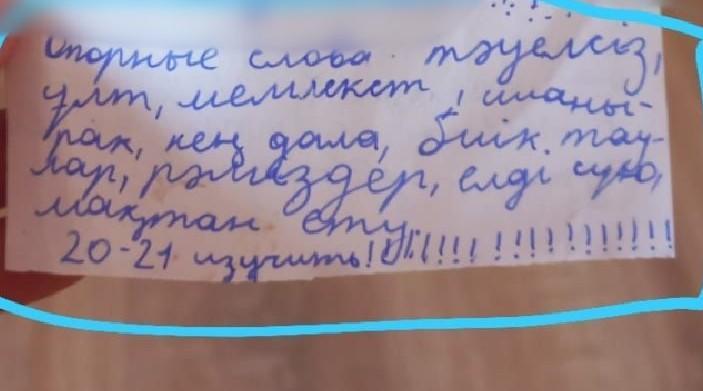 Опорные слова тәуелсіз,
ұлт, мемлекет, шаңы-
рақ, кең дала, биік тау-
лар, рәміздер, елді сүю,
мақтан ету.
20-21 изучить!!!!!!!! !!!!!!!!!!!!